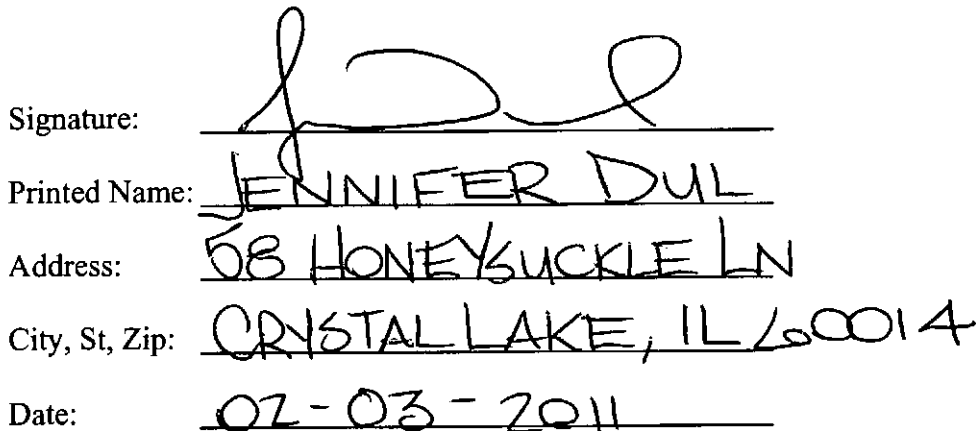 Signature:
Printed Name: JENNIFER DUL
Address: 58 HONEYSUCKLE LN
City, St, Zip: CRYSTAL LAKE, IL 60014
Date: 02-03-2011